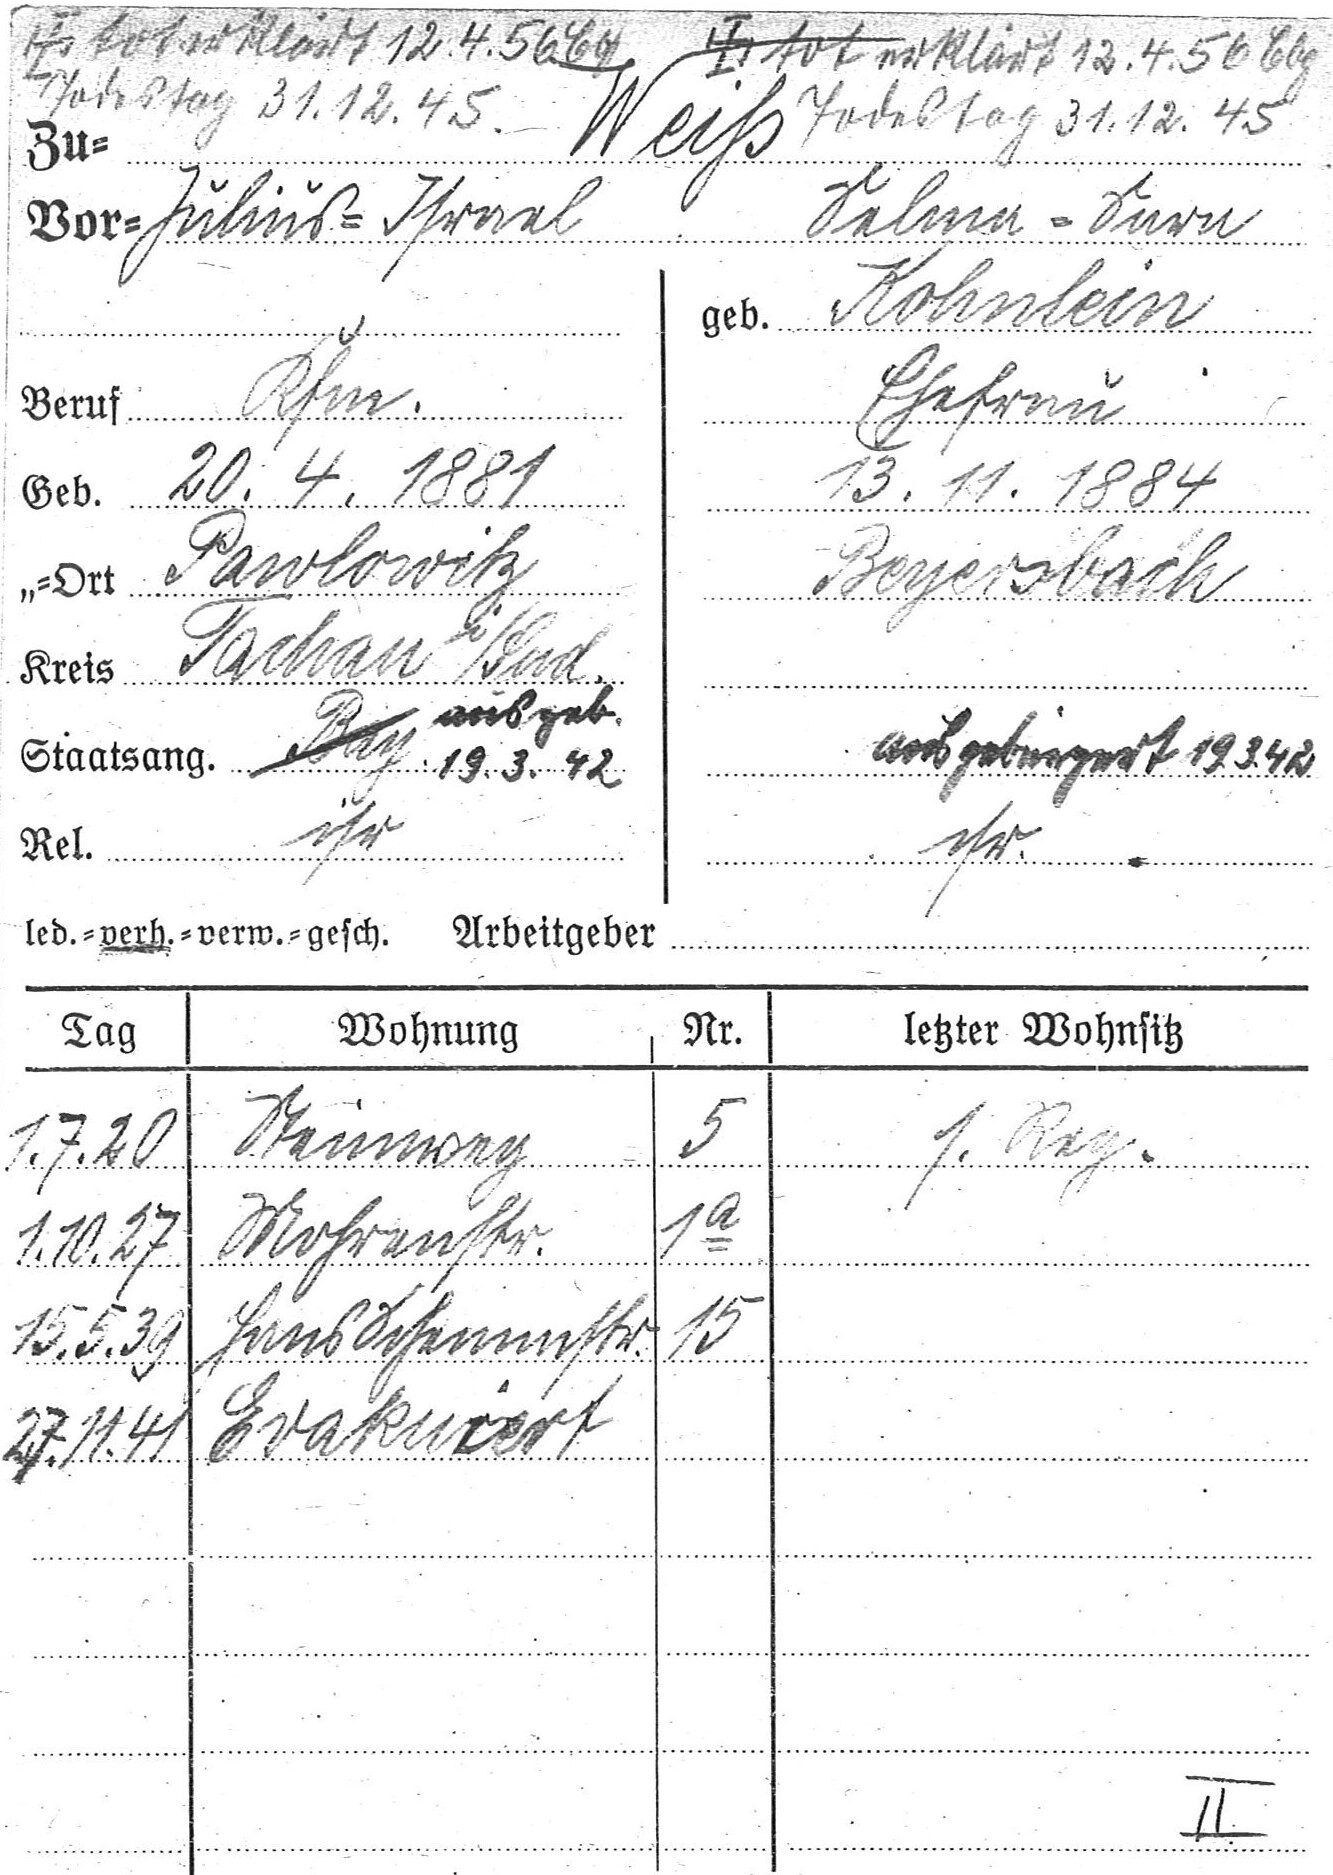 I. tot erklärt 12.4.56 Cbg I. tot erklärt 12.4.56 Cbg
Todestag 31.12.45. Todestag 31.12.45
Zu= Weiß
Vor= Julius= Israel Selma = Sara
geb. Kohnlein
Beruf Kfm. Ehefrau
Geb. 20. 4. 1881 13. 11. 1884
„=Ort Pawlowitz Beyersbach
Kreis Tachau i/Sud.
Staatsang. Bay. ausgeb. 19.3.42 ausgebürgert 19.3.42
Rel. isr isr.
led.=verh.=verw.=gesch. Arbeitgeber
Tag Wohnung Nr. letzter Wohnsitz
1.7.20 Steinweg 5 1. Reg.
1.10.27 Mohrenstr. 1a
15.5.39 Hans Schemmstr. 15
27.11.41 Evakuiert
II